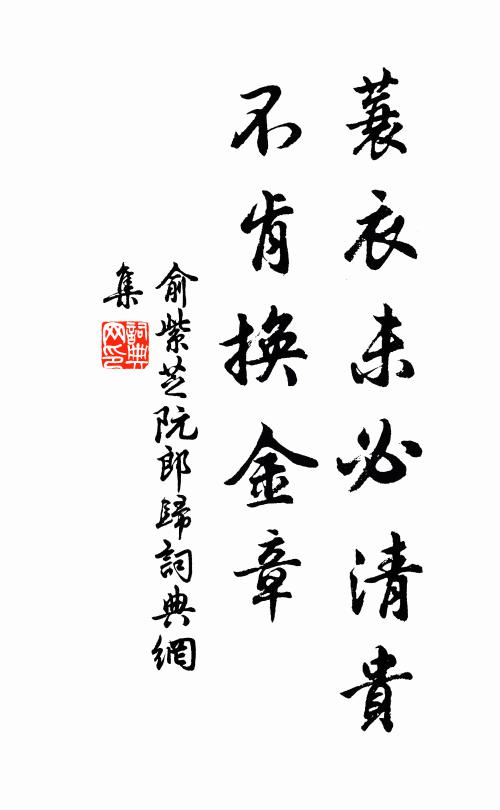 蓑衣未必清貴
不肯換金章
俞紫芝阮郎歸詞典網
集
詞典
网印